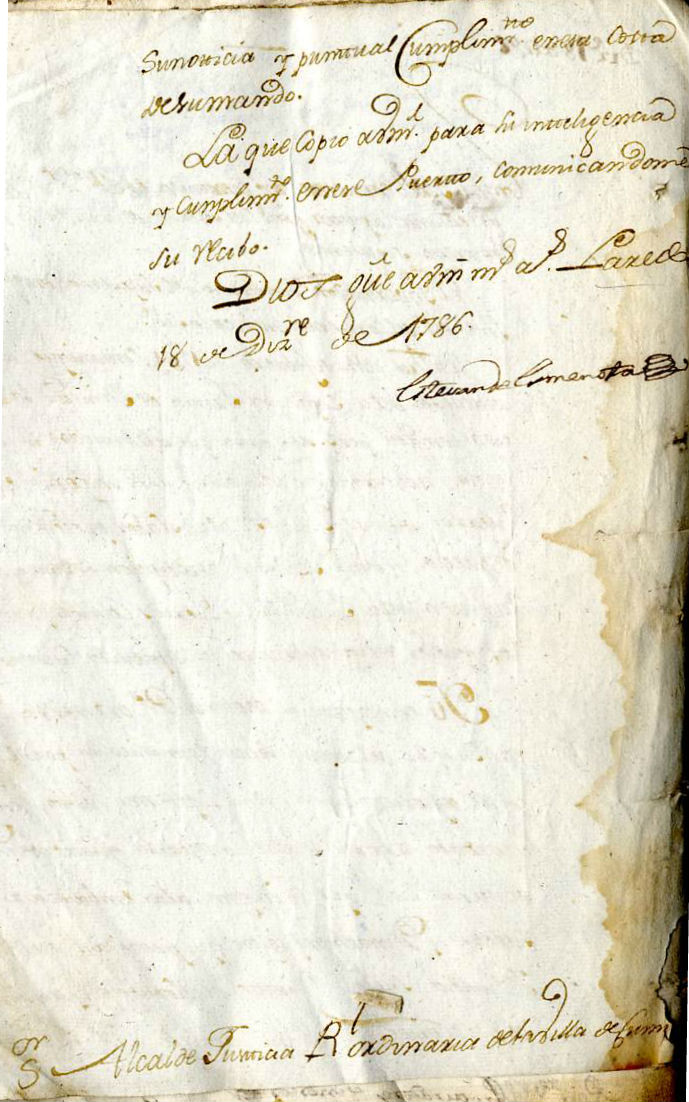 Su noticia y puntual Cumplim.to en esta Costa
de su mando.
La que Copio a Vm. para su inteligencia
y Cumplim.to en ese Puerto, comunicandome
su recibo.
Dios gūe a Vm m.s a.s Laredo
18 de Diz.re de 1786.
Estevan de
S.or Alcalde Justicia R.l ordinaria de la Villa de